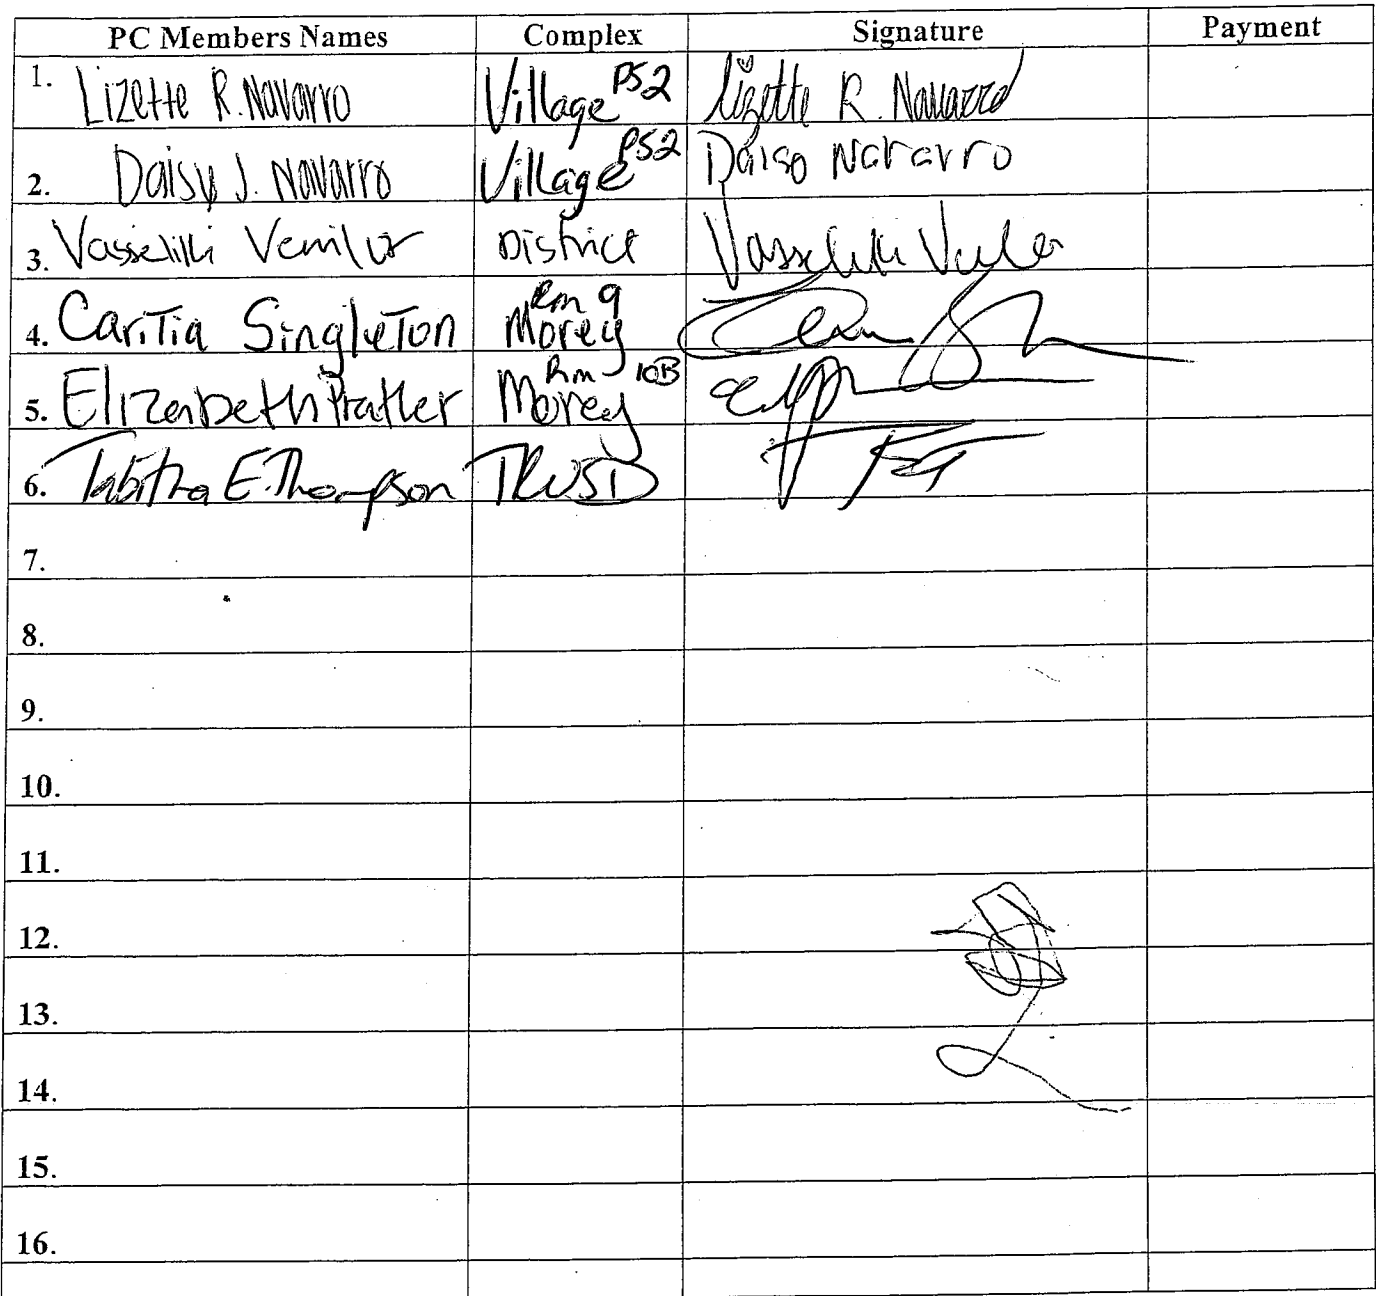 PC Members Names Complex Signature Payment
1. Lizette R. Navarro Village PS2 Lizette R. Navarro
2. Daisy J. Navarro Village PS2 Daisy Navarro
3. District
4. Caritia Singleton Rm 9 Morey
5. Elizabeth Prather Rm 10B Morey
6. Tabitha E. Thompson TRUSD
7.
8.
9.
10.
11.
12.
13.
14.
15.
16.